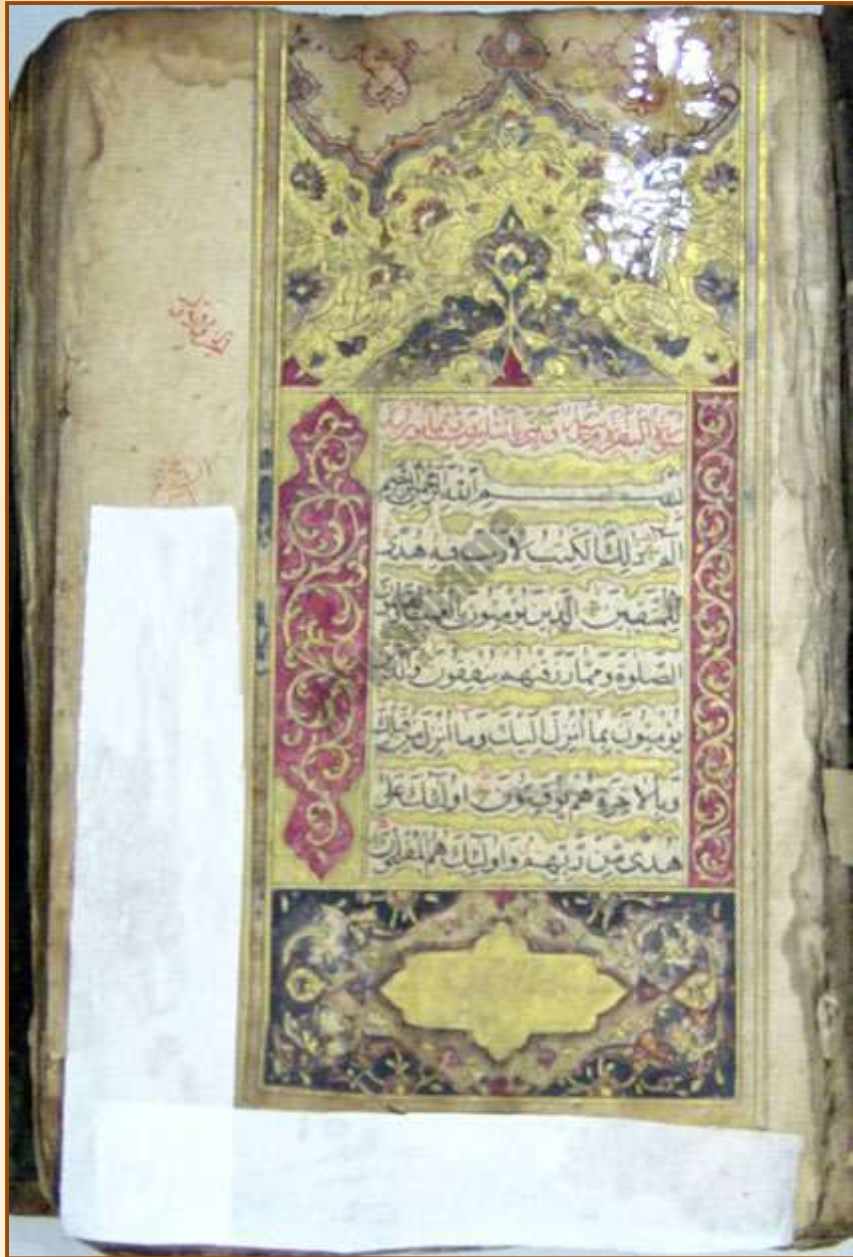 سورة البقرة
بسم الله الرحمن الرحيم
الم ذلك الكتب لا ريب فيه هدى
للمتقين الذين يؤمنون بالغيب ويقيمون
الصلوة ومما رزقنهم ينفقون والذين
يؤمنون بما انزل اليك وما انزل من قبلك
وبالاخرة هم يوقنون اولئك على
هدى من ربهم واولئك هم المفلحون